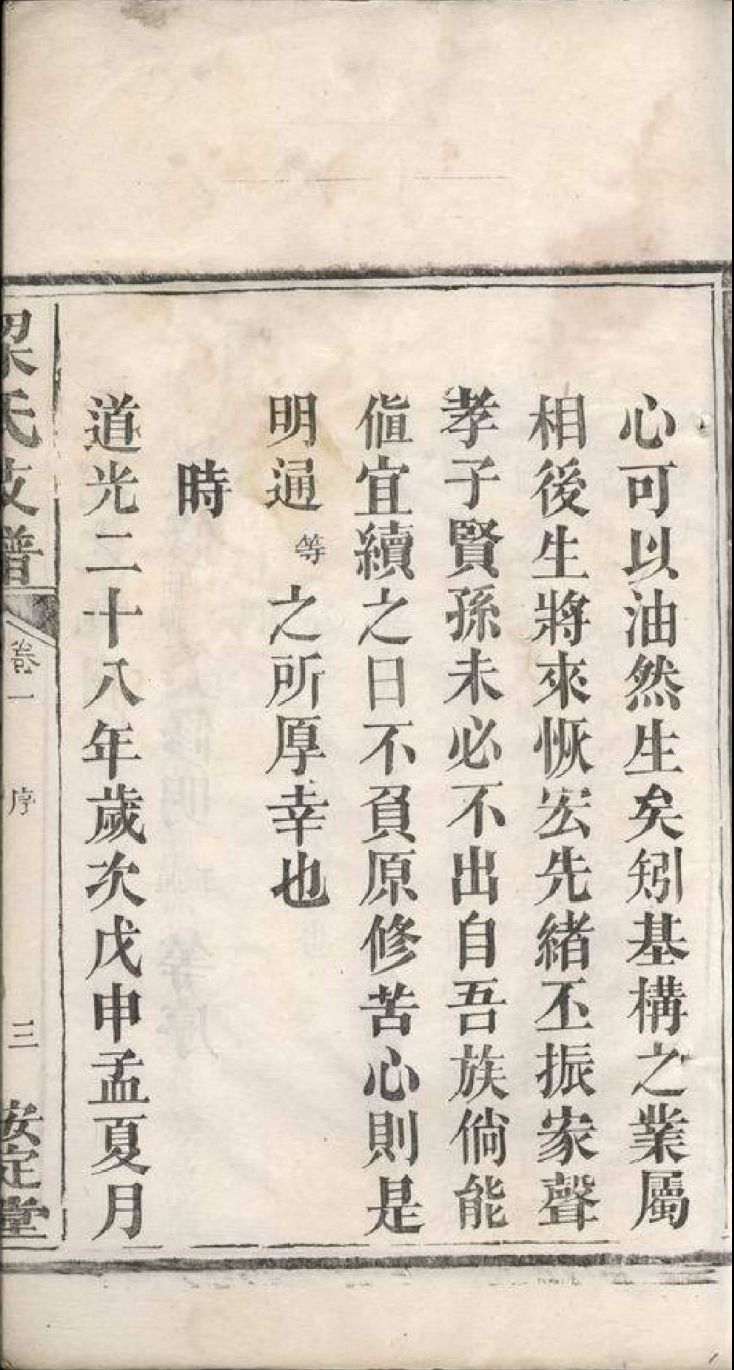 心可以油然生矣矧基構之業屬
相後生將來恢宏先緒丕振家聲
孝子賢孫未必不出自吾族倘能
値宜續之日不負原修苦心則是
明通等之所厚幸也
時
道光二十八年歲次戊申孟夏月
梁氏支譜 卷一 序 三 安定堂